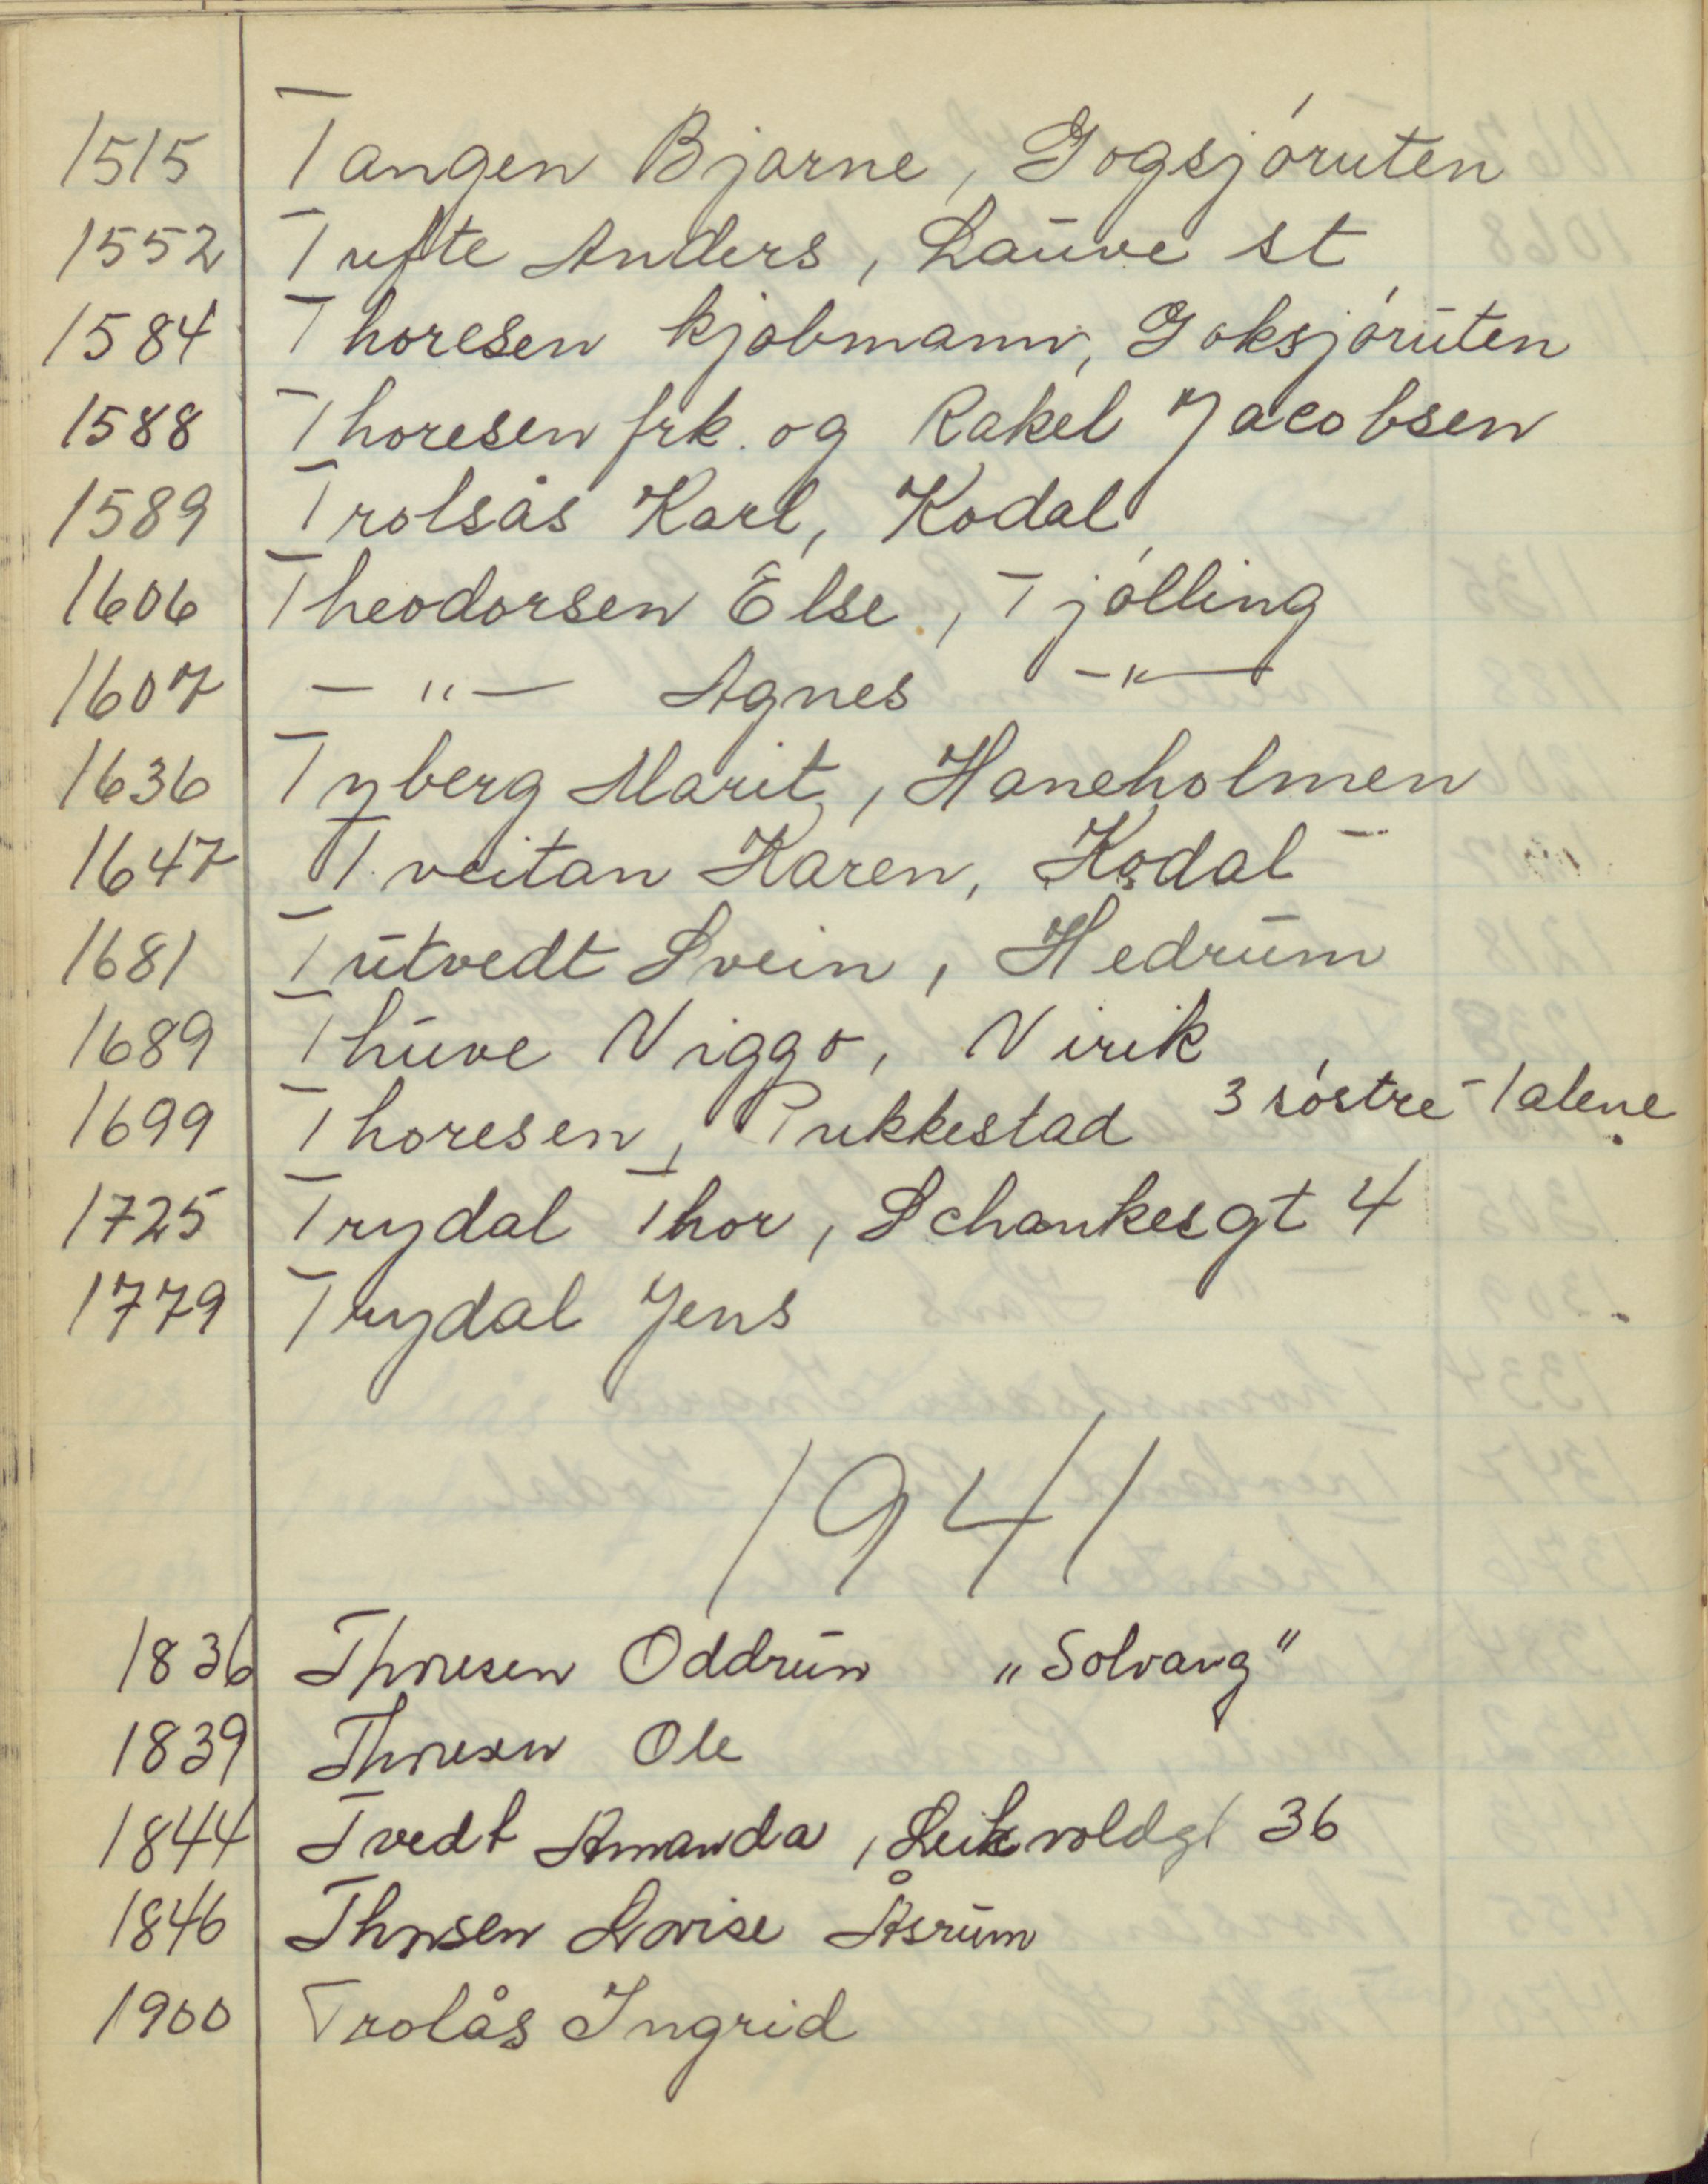 1515 Tangen Bjarne, Gogsjøruten
1552 Tufte Anders, Lauve st
1584 Thoresen kjøbmann, Goksjøruten
1588 Thoresen frk. og Rakel Jacobsen
1589 Trolsås Karl, Kodal
1606 Theodorsen Else, Tjølling
1607 — " — Agnes — " —
1636 Tyberg Marit, Haneholmen
1647 Tveitan Karen, Kodal
1681 Tutvedt Svein, Hedrum
1689 Thuve Viggo, Virik
1699 Thoresen, Pukkestad 3 søstre - 1 alene
1725 Trydal Thor, Schankesgt 4
1779 Trydal Jens
1941
1836 Thoresen Oddrun „Solvang"
1839 Thoresen Ole
1844 Tvedt Amanda, Leikvoldgt 36
1846 Thorsen Lovise Åsrum
1900 Trolås Ingrid